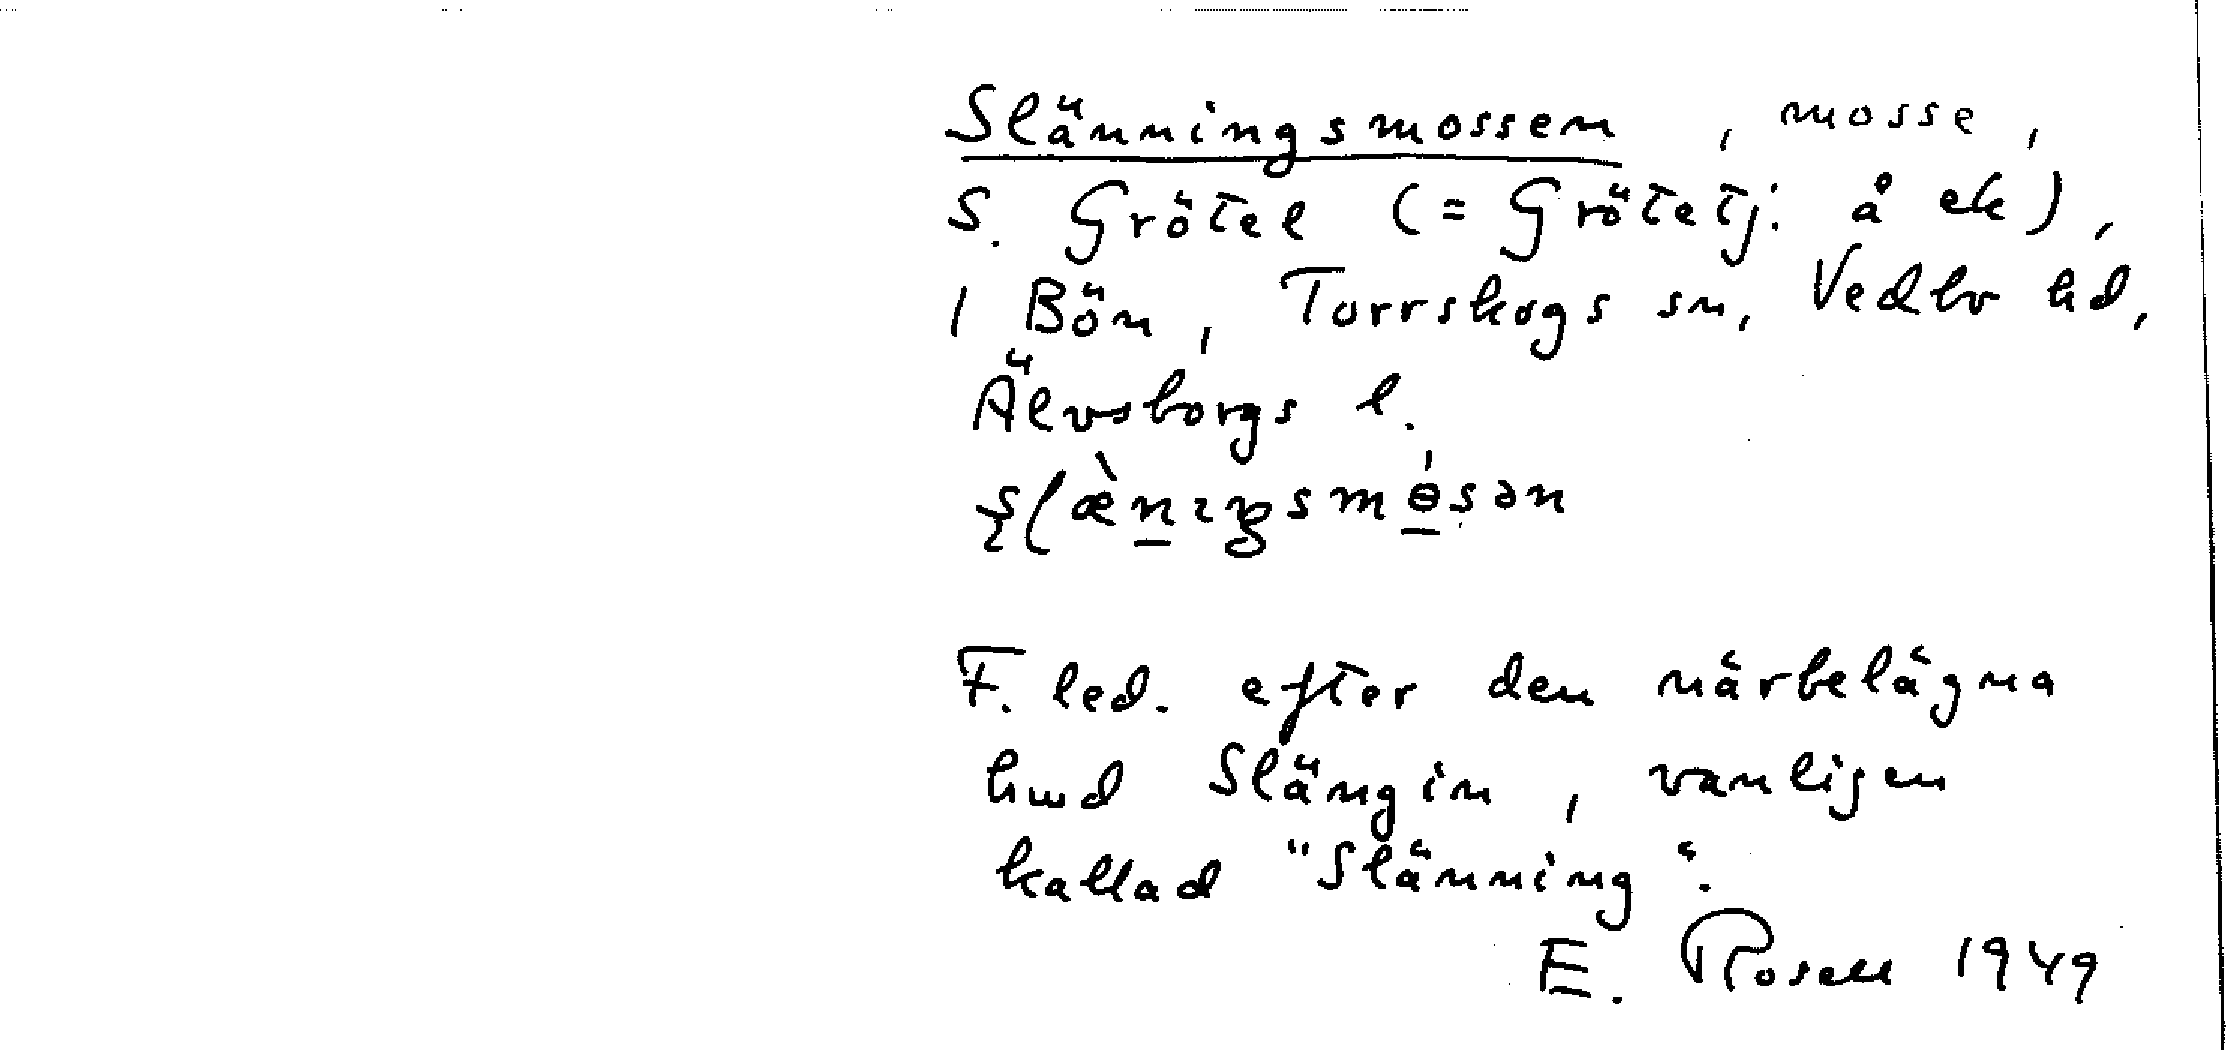 Slänningsmossen, mosse,
S. Grötel (= Grötetj. å ek),
1 Bön, Torrskogs sn, Vedbo hd,
Älvsborgs l.
F. led. efter den närbelägna
hmd Slängin, vanligen
kallad "Slänning".
E. Rosell 1949